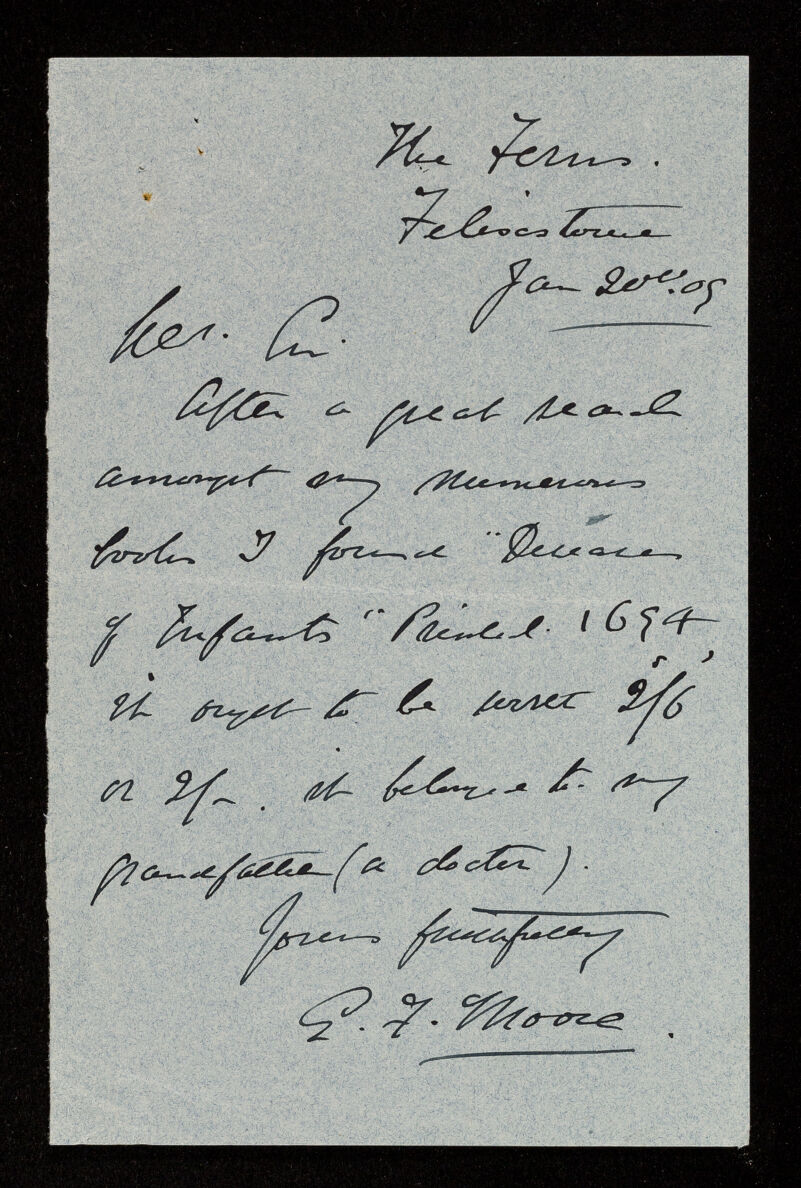 The Ferns.
Felixstowe
Jan 20th. 09
Dear Sir.
After a great search
amongst my numerous
books I found "Diseases
of Infants" Printed. 1694,
it ought to be worth 2/6
or 2/-. it belonged to my
grandfather (a doctor).
Yours faithfully
E. F. Moore.